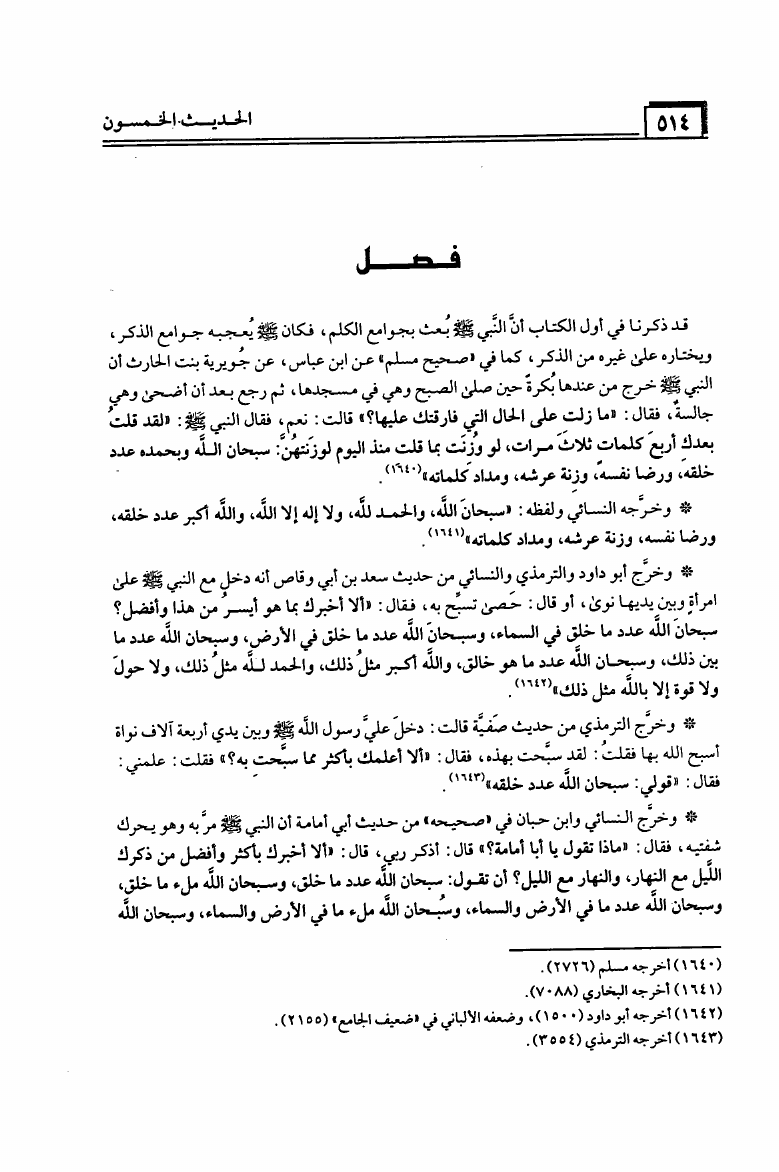 ٥١٤
الحديث الخمسون
فصل
قد ذكرنا في أول الكتاب أنَّ النَّبي ﷺ بُعث بجوامع الكلم، فكان ﷺ يُعجبه جوامع الذكر،
ويختاره علىٰ غيره من الذكر، كما في «صحيح مسلم» عن ابن عباس، عن جُويرية بنت الحارث أن
النبي ﷺ خرج من عندها بُكرةً حين صلىٰ الصبح وهي في مسجدها، ثم رجع بعد أن أضحىٰ وهي
جالسةٌ، فقال: «ما زلت على الحال التي فارقتك عليها؟» قالت: نعم، فقال النبي ﷺ: «لقد قلتُ
بعدكِ أربعَ كلمات ثلاثَ مرات، لو وُزنَت بما قلت منذ اليوم لوزَنتهُنَّ: سبحان اللَّه وبحمده عدد
خلقه، ورضا نفسه، وزنة عرشه، ومداد كلماته»(١٦٤٠).
* وخرَّجه النسائي ولفظه: «سبحانَ اللَّه، والحمد للَّه، ولا إله إلا اللَّه، واللَّه أكبر عدد خلقه،
ورضا نفسه، وزنة عرشه، ومداد كلماته»(١٦٤١).
* وخرَّج أبو داود والترمذي والنسائي من حديث سعد بن أبي وقاص أنه دخل مع النبي ﷺ علىٰ
امرأةٍ وبين يديها نوىٰ، أو قال: حَصىٰ تسبِّح به، فقال: «ألا أخبرك بما هو أيسرُ من هذا وأفضل؟
سبحانَ اللَّه عدد ما خلق في السماء، وسبحانَ اللَّه عدد ما خلق في الأرض، وسبحان اللَّه عدد ما
بين ذلك، وسبحان اللَّه عدد ما هو خالق، واللَّه أكبر مثلُ ذلك، والحمد للَّه مثلُ ذلك، ولا حولَ
ولا قوة إلا باللَّه مثل ذلك»(١٦٤٢).
* وخرَّج الترمذي من حديث صَفيَّة قالت: دخلَ عليَّ رسول اللَّه ﷺ وبين يدي أربعة آلاف نواة
أسبح الله بها فقلتُ: لقد سبَّحت بهذه، فقال: «ألا أعلمك بأكثر مما سبَّحتِ به؟» فقلت: علمني:
فقال: «قولي: سبحان اللَّه عدد خلقه»(١٦٤٣).
* وخرَّج النسائي وابن حبان في «صحيحه» من حديث أبي أمامة أن النبي ﷺ مرَّ به وهو يحرك
شفتيه، فقال: «ماذا تقول يا أبا أمامة؟» قال: أذكر ربي، قال: «ألا أخبرك بأكثر وأفضل من ذكرك
اللَّيل مع النهار، والنهار مع الليل؟ أن تقول: سبحان اللَّه عدد ما خلق، وسبحان اللَّه ملء ما خلق،
وسبحان اللَّه عدد ما في الأرض والسماء، وسُبحان اللَّه ملء ما في الأرض والسماء، وسبحان اللَّه
(١٦٤٠) أخرجه مسلم (٢٧٢٦).
(١٦٤١) أخرجه البخاري (٧٠٨٨).
(١٦٤٢) أخرجه أبو داود (١٥٠٠)، وضعفه الألباني في «ضعيف الجامع» (٢١٥٥).
(١٦٤٣) أخرجه الترمذي (٣٥٥٤).